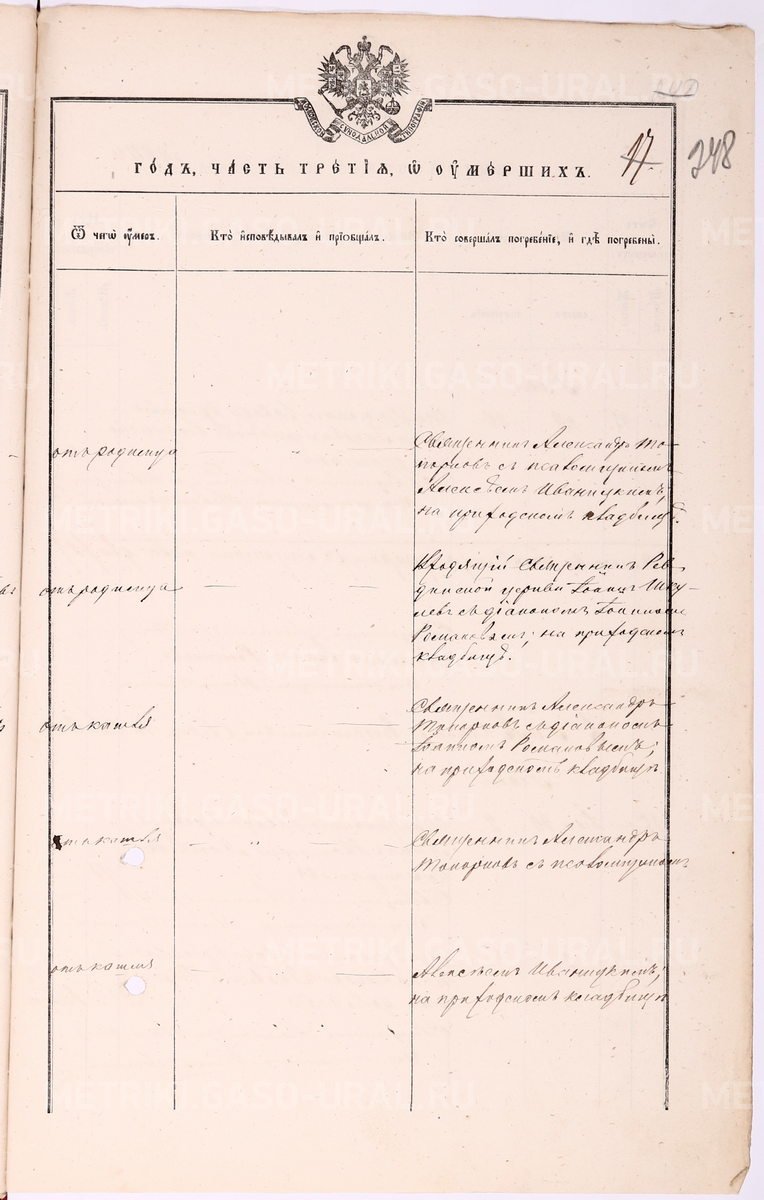 МОСКОВСКОЙ СѴНОДАЛЬНОЙ ТИПОГРАФІИ
17.
348
ГО́ДЪ, ЧА́СТЬ ТРЕ́ТІѦ, Ѡ҆ ОУ҆МЕ́РШИХЪ.
Ѿ чегѡ̀ оу҆́меръ.
Кто̀ и҆сповѣ́дывалъ и҆ прїѡбща́лъ.
Кто̀ соверша́лъ погребе́нїе, и҆ гдѣ̀ погребены̀.
отъ родимца
Священникъ Александръ То-
порковъ съ псаломщикомъ
Алексѣемъ Иваницкимъ,
на приходскомъ кладбищѣ.
отъ родимца
Священникъ Рев-
динской церкви Іоаннъ
съ діакономъ Іоанномъ
Романовымъ, на приходскомъ
кладбищѣ.
отъ кашля
Священникъ Александръ
Топорковъ съ діакономъ
Іоанномъ Романовымъ,
на приходскомъ кладбищѣ
отъ кашля
Священникъ Александръ
Топорковъ съ псаломщикомъ
отъ кашля
Алексѣемъ Иваницкимъ,
на приходскомъ кладбищѣ
METRIKI.GASO-URAL.RU